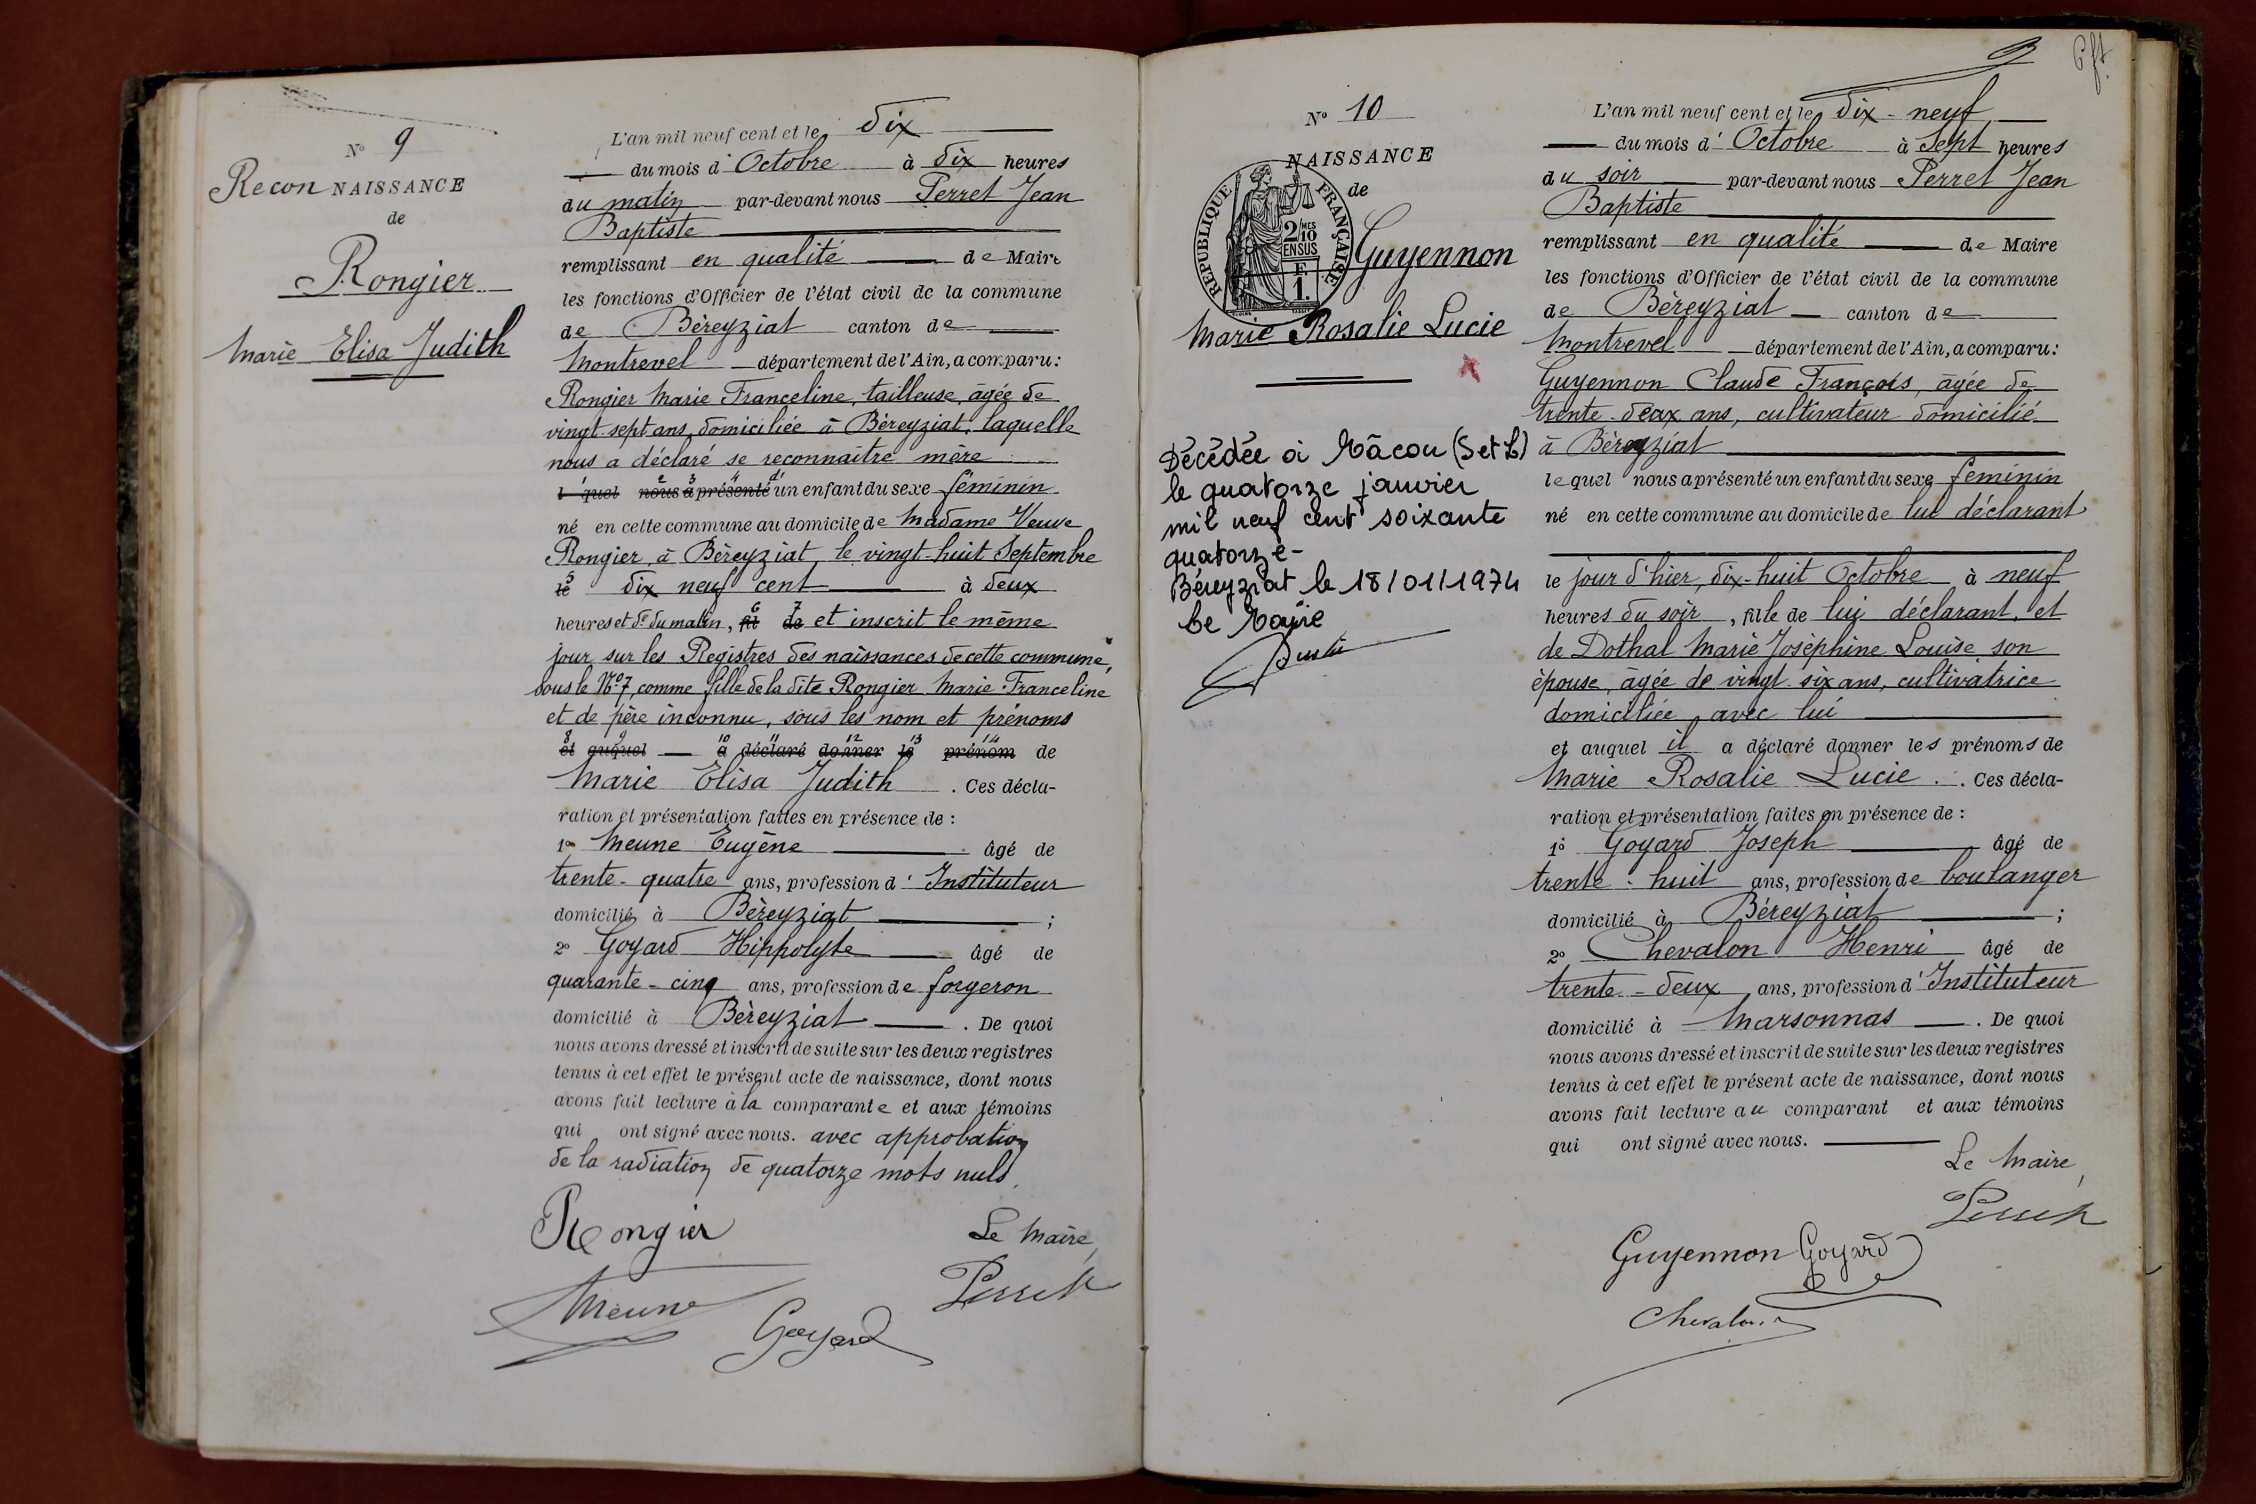 N° 9
Reconnaissance
de
Rongier
Marie Elisa Judith
L'an mil neuf cent et le dix
du mois d'Octobre à dix heures
du matin par-devant nous Perret Jean
Baptiste
remplissant en qualité de Maire
les fonctions d'Officier de l'état civil de la commune
de Béreyziat canton de
Montrevel département de l'Ain, a comparu:
Rongier Marie Franceline, tailleuse, âgée de
vingt-sept ans, domiciliée à Béreyziat, laquelle
nous a déclaré se reconnaître mère
l quel nous a présenté d'un enfant du sexe féminin
né en cette commune au domicile de Madame Veuve
Rongier, à Béreyziat, le vingt-huit Septembre
le dix neuf cent à deux
heures et de du matin, fil de et inscrit le même
jour sur les Registres des naissances de cette commune,
sous le N° 7, comme fille de la dite Rongier Marie-Franceline
et de père inconnu, sous les nom et prénoms
et auquel a déclaré donner le prénom de
Marie Elisa Judith. Ces décla-
ration et présentation faites en présence de :
1° Meune Eugène âgé de
trente-quatre ans, profession d'Instituteur
domicilié à Béreyziat ;
2° Goyard Hippolyte âgé de
quarante-cinq ans, profession de forgeron
domicilié à Béreyziat. De quoi
nous avons dressé et inscrit de suite sur les deux registres
tenus à cet effet le présent acte de naissance, dont nous
avons fait lecture à la comparante et aux témoins
qui ont signé avec nous. avec approbation
de la radiation de quatorze mots nuls.
Rongier
Le Maire,
Perret
Meune
Goyard
N° 10
NAISSANCE
de
RÉPUBLIQUE FRANÇAISE
2/10 MES
EN SUS
F.
1.
Guyennon
Marie Rosalie Lucie
Décédée à Mâcon (S et L)
le quatorze janvier
mil neuf cent soixante
quatorze-
Béreyziat le 18/01/1974
Le Maire
L'an mil neuf cent et le dix-neuf
du mois d'Octobre à Sept heures
du soir par-devant nous Perret Jean
Baptiste
remplissant en qualité de Maire
les fonctions d'Officier de l'état civil de la commune
de Béreyziat canton de
Montrevel département de l'Ain, a comparu:
Guyennon Claude François, âgée de
trente-deux ans, cultivateur domicilié
à Béreyziat
lequel nous a présenté un enfant du sexe féminin
né en cette commune au domicile de lui déclarant
le jour d'hier, dix-huit Octobre à neuf
heures du soir, fille de lui déclarant, et
de Dothal Marie Joséphine Louise son
épouse, âgée de vingt-six ans, cultivatrice
domiciliée avec lui
et auquel il a déclaré donner les prénoms de
Marie Rosalie Lucie. Ces décla-
ration et présentation faites en présence de :
1° Goyard Joseph âgé de
trente-huit ans, profession de boulanger
domicilié à Béreyziat ;
2° Chevalon Henri âgé de
trente-deux ans, profession d'Instituteur
domicilié à Marsonnas. De quoi
nous avons dressé et inscrit de suite sur les deux registres
tenus à cet effet le présent acte de naissance, dont nous
avons fait lecture au comparant et aux témoins
qui ont signé avec nous.
Le Maire,
Perret
Guyennon Goyard
Chevalon